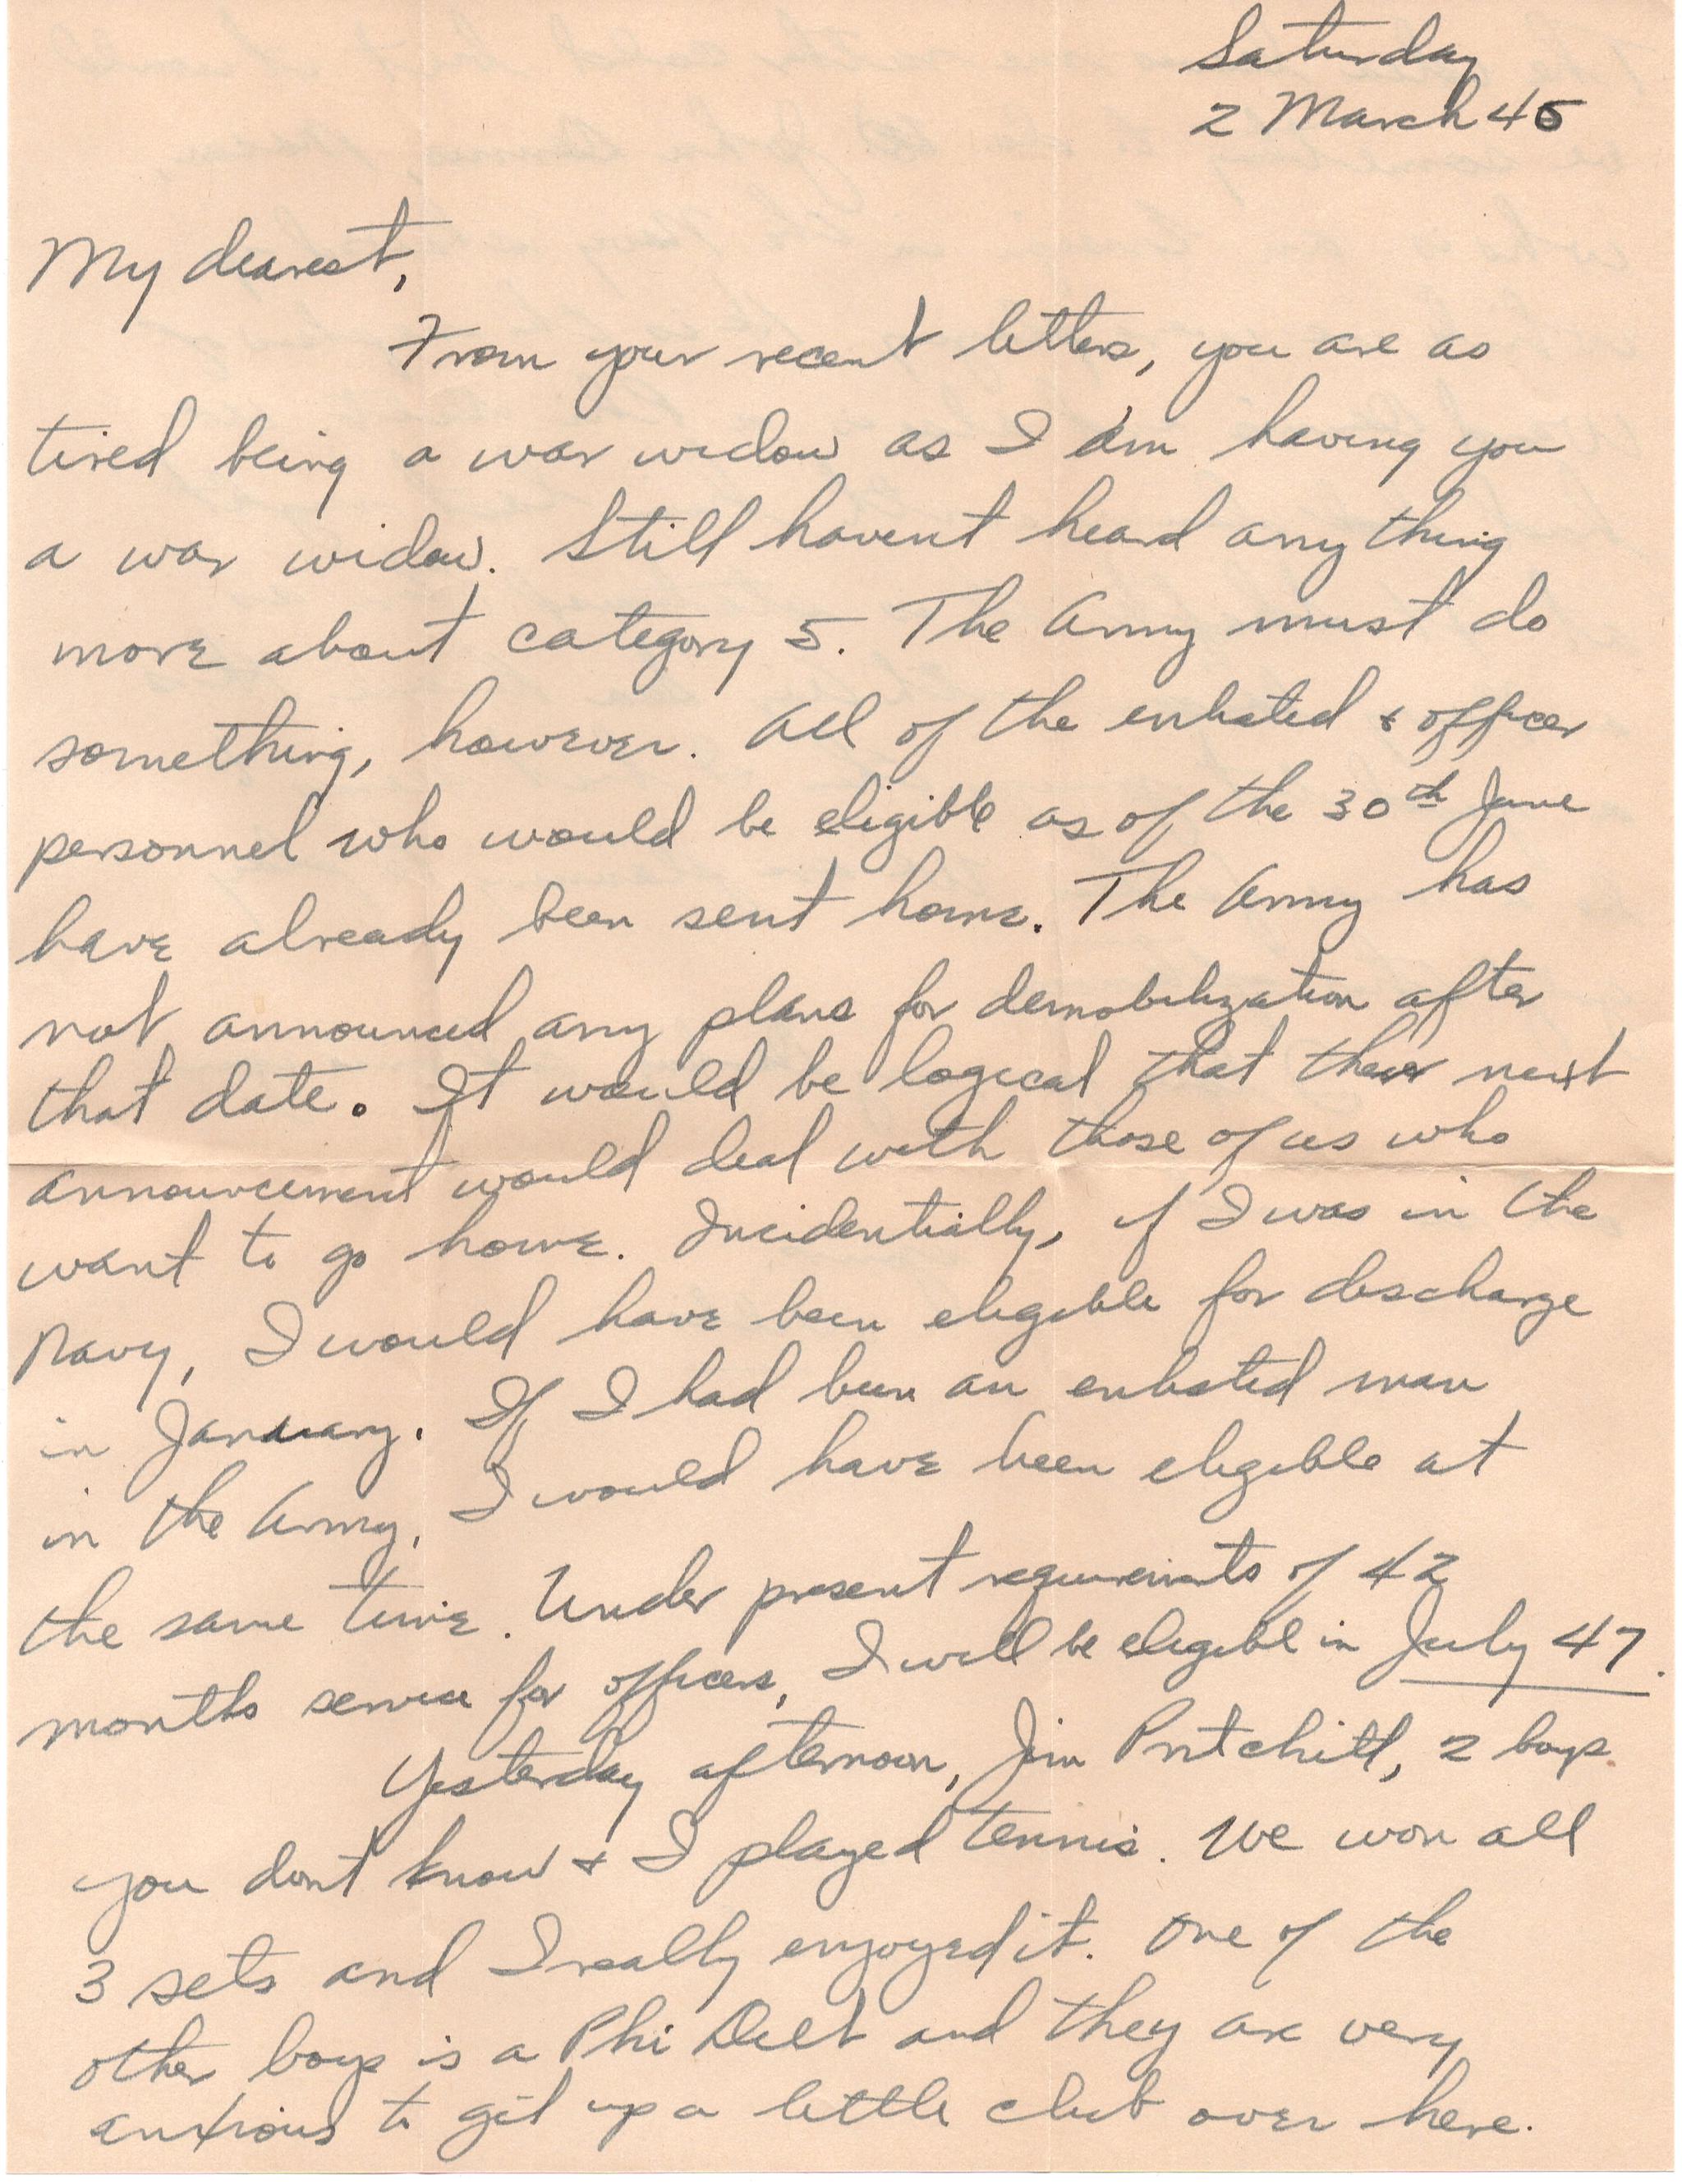 Saturday
2 March 46
My dearest,
From your recent letters, you are as
tired being a war widow as I am having you
a war widow. Still havent heard any thing
more about category 5. The Army must do
something, however. All of the enlisted & officer
personnel who would be eligible as of the 30th June
have already been sent home. The Army has
not announced any plans for demobilization after
that date. It would be logical that their next
announcement would deal with those of us who
want to go home. Incidentially, if I was in the
Navy, I would have been eligible for discharge
in January. If I had been an enlisted man
in the Army, I would have been eligible at
the same time. Under present requirements of 42
months service for officers, I will be eligible in July 47.
Yesterday afternoon, Jim Pritchitt, 2 boys
you dont know & I played tennis. We won all
3 sets and I really enjoyed it. One of the
other boys is a Phi Delt and they are very
anxious to get up a little club over here.